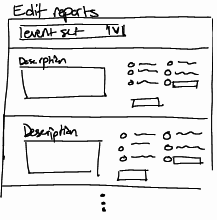 Edit reports
1 event set
Description
Description